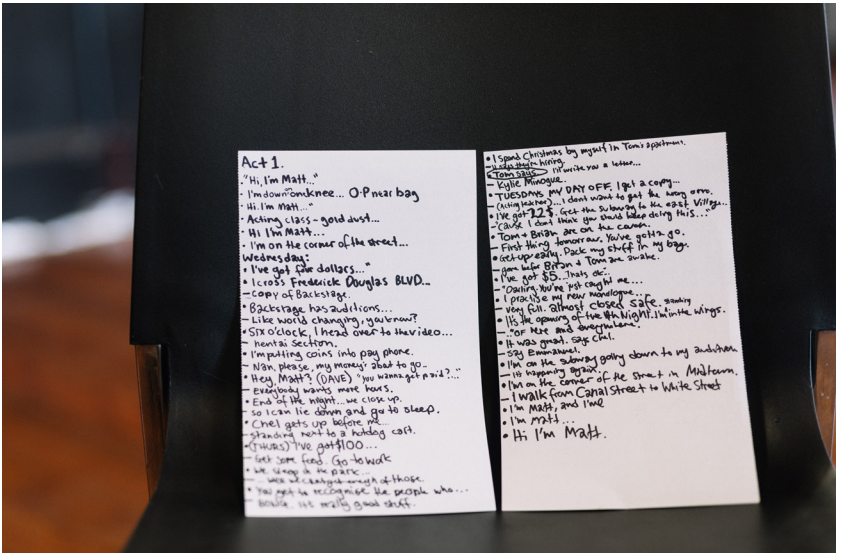 Act 1.
• "Hi, I'm Matt..."
• I'm down on one knee... O.P near bag
• Hi I'm Matt..."
• Acting class - gold dust...
• Hi I'm Matt...
• I'm on the corner of the street...
Wednesday:
• I've got five dollars..."
• I cross Frederick Douglas BLVD...
- copy of Backstage.
• Backstage has auditions...
- Like world changing, you know?
• Six o'clock, I head over to the video...
- hentai section.
• I'm putting coins into pay phone.
- Nan, please, my money's about to go..
• Hey, Matt? (DAVE) "you wanna get paid?..."
- Everybody wants more hours.
• End of the night... we close up.
- so I can lie down and go to sleep.
• Chel gets up before me...
- standing next to a hotdog cart.
• (THURS) I've got $100...
- Get some food. Go to work
• We sleep in the park...
- ... enough of those.
• You get to recognise the people who...
- it's really good stuff.
• I spend Christmas by myself in Tom's apartment.
- they're hiring.
• Tom says I'll write you a letter...
- Kylie Minogue.
• TUESDAYS MY DAY OFF. I get a copy...
- (Acting teacher)... I don't want to get the wrong
• I've got 22$. Get the subway to the east Village..
- 'Cause I don't think you should keep doing this..."
• Tom + Brian are on the couch.
- First thing tomorrow. You've gotta go.
• Get up early. Pack my stuff in my bag.
- gone before Brian + Tom are awake.
• I've got $5... Thats ok..
- "Darling. You've just caught me...
• I practise my new monologue...
- very full. almost closed safe.
• It's the opening of Night. I'm in the wings.
- "OF Here and everywhere.
• It was great. says Chel.
- say Emmanuel.
• I'm on the subway going down to my audition
- it happening again.
• I'm on the corner of the street in Midtown.
- I walk from Canal Street to White Street
• I'm Matt, and I'm
• I'm Matt...
• Hi I'm Matt.